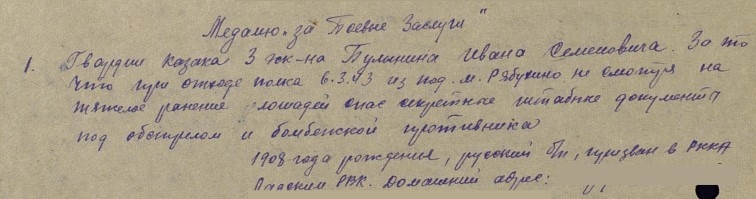 Медалью "за Боевые Заслуги"
1. Гвардии казака 3 эск-на Пульнина Ивана Семеновича. За то
что при отходе полка 6.3.43 из под м. Рябухино не смотря на
тяжелое ранение лошадей спас секретные штабные документы
под обстрелом и бомбежкой противника
1908 года рождения, русский б/п, призван в РККА
РВК. Домашний адрес: